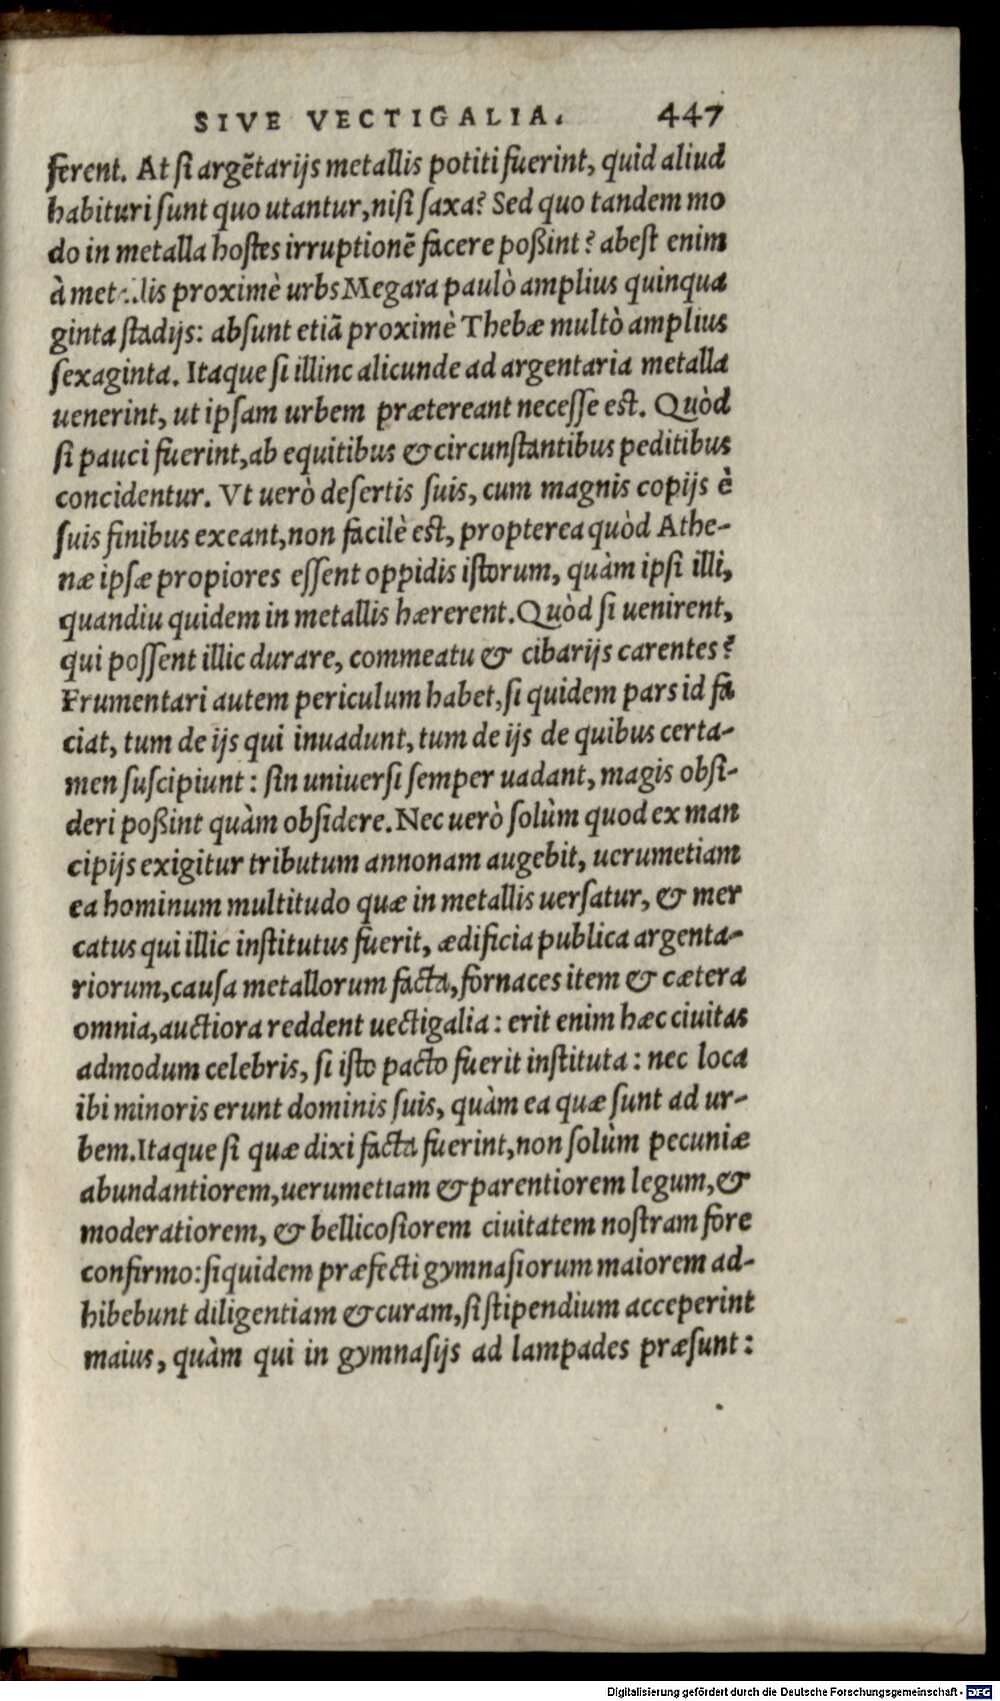 SIVE VECTIGALIA. 447
ferent. At si argẽtarijs metallis potiti fuerint, quid aliud
habituri sunt quo utantur, nisi saxa? Sed quo tandem mo
do in metalla hostes irruptionẽ facere poßint? abest enim
à met lis proximè urbs Megara paulò amplius quinqua
ginta stadijs: absunt etiã proximè Thebæ multò amplius
sexaginta. Itaque si illinc alicunde ad argentaria metalla
uenerint, ut ipsam urbem prætereant necesse est. Quòd
si pauci fuerint, ab equitibus & circunstantibus peditibus
concidentur. Vt uerò desertis suis, cum magnis copijs è
suis finibus exeant, non facilè est, propterea quòd Athe-
næ ipsæ propiores essent oppidis istorum, quàm ipsi illi,
quandiu quidem in metallis hærerent. Quòd si uenirent,
qui possent illic durare, commeatu & cibarijs carentes?
Frumentari autem periculum habet, si quidem pars id fa
ciat, tum de ijs qui inuadunt, tum de ijs de quibus certa-
men suscipiunt: sin uniuersi semper uadant, magis obsi-
deri poßint quàm obsidere. Nec uerò solùm quod ex man
cipijs exigitur tributum annonam augebit, uerumetiam
ea hominum multitudo quæ in metallis uersatur, & mer
catus qui illic institutus fuerit, ædificia publica argenta-
riorum, causa metallorum facta, fornaces item & cætera
omnia, auctiora reddent uectigalia: erit enim hæc ciuitas
admodum celebris, si isto pacto fuerit instituta: nec loca
ibi minoris erunt dominis suis, quàm ea quæ sunt ad ur-
bem. Itaque si quæ dixi facta fuerint, non solùm pecuniæ
abundantiorem, uerumetiam & parentiorem legum, &
moderatiorem, & bellicosiorem ciuitatem nostram fore
confirmo: siquidem præfecti gymnasiorum maiorem ad-
hibebunt diligentiam & curam, si stipendium acceperint
maius, quàm qui in gymnasijs ad lampades præsunt:
Digitalisierung gefördert durch die Deutsche Forschungsgemeinschaft - DFG